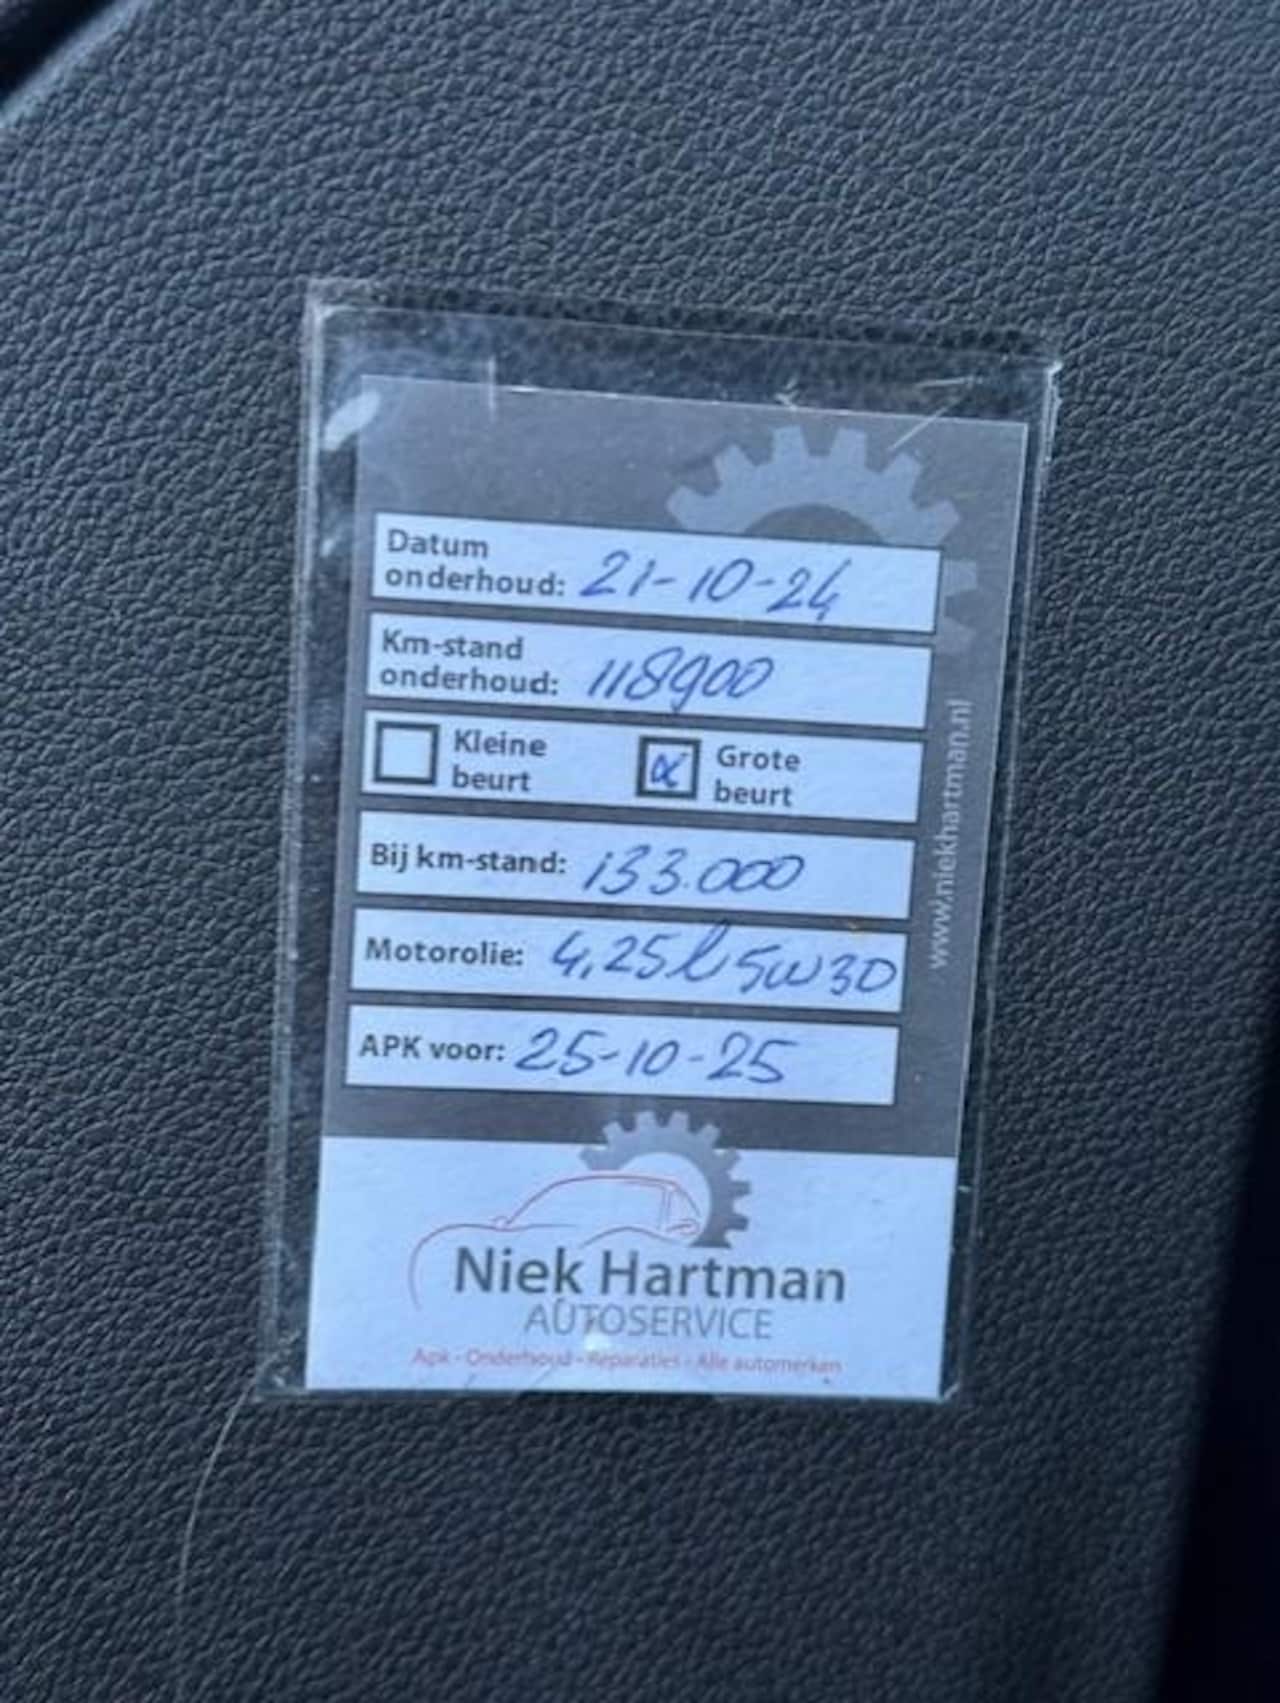 Datum
onderhoud: 21-10-24
Km-stand
onderhoud: 118900
Kleine
beurt
Grote
beurt
Bij km-stand: 133.000
Motorolie: 4,25l 5w30
APK voor: 25-10-25
www.niekhartman.nl
Niek Hartman
AUTOSERVICE
Apk - Onderhoud - Reparaties - Alle automerken